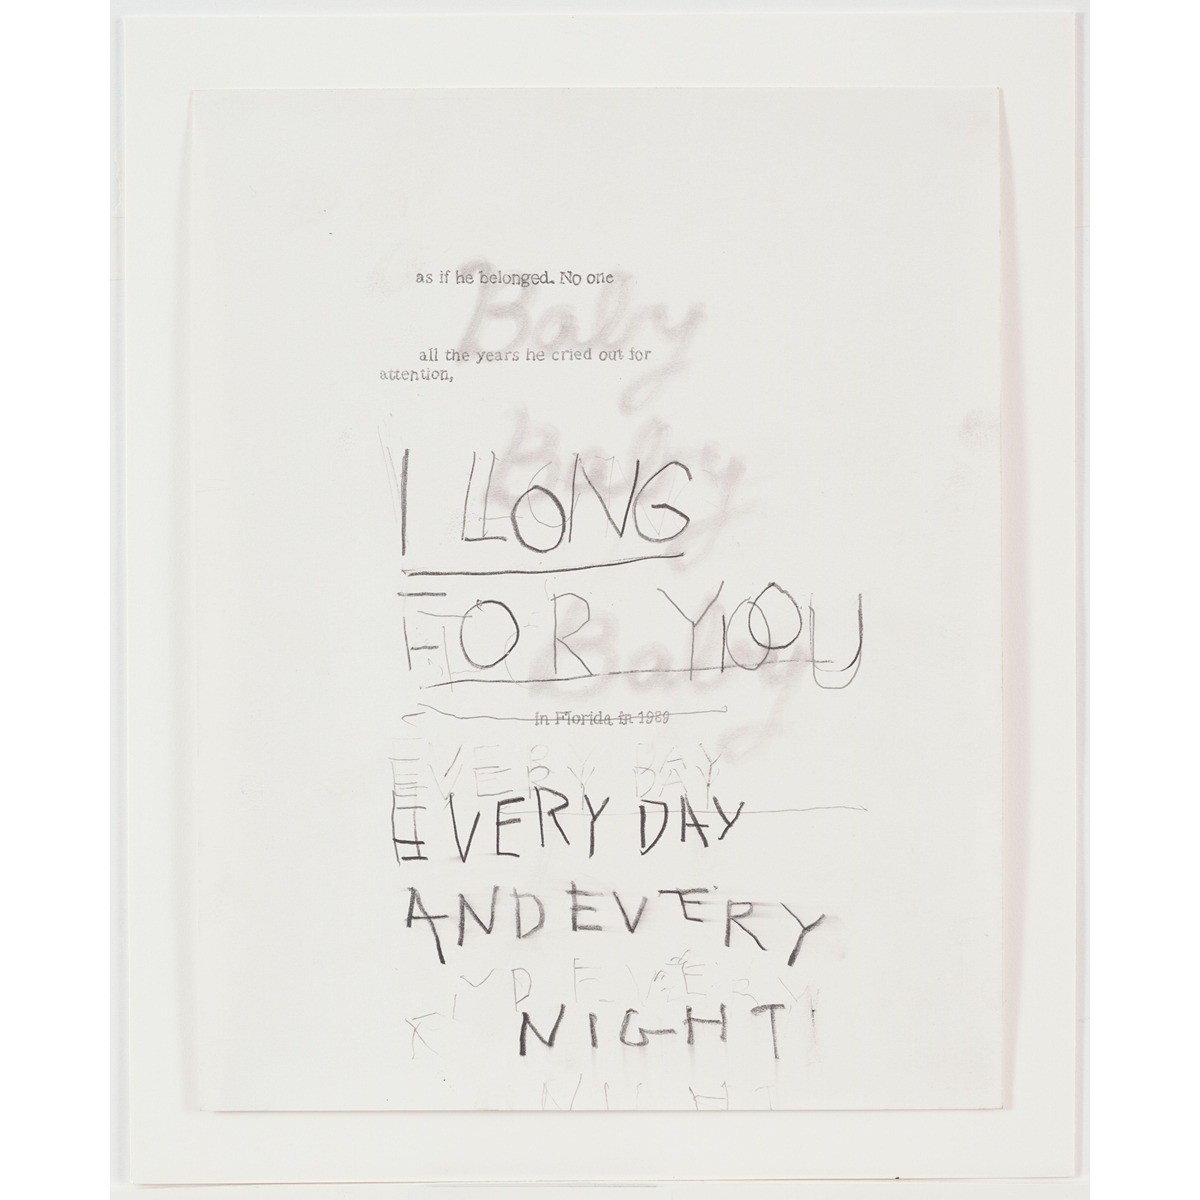 as if he belonged. No one
Baby
all the years he cried out for
attention,
Baby
I LONG
FOR YOU
Baby
in Florida in 1989
EVERY DAY
EVERY DAY
EVERY DAY
AND EVERY
D EVERY
NIGHT
NIGHT